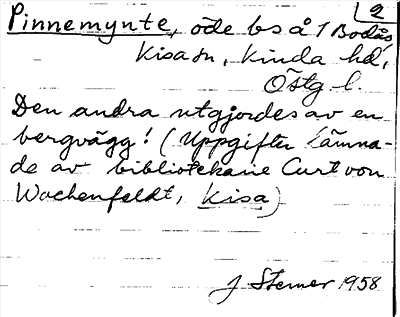 2
Pinnemynte, öde bs å 1 Bodås,
Kisa sn, Kinda hd,
Östg l.
Den andra utgjordes av en
bergvägg! (Uppgifter lämna-
de av bibliotekarie Curt von
Wachenfeldt, Kisa)
J Sterner 1958